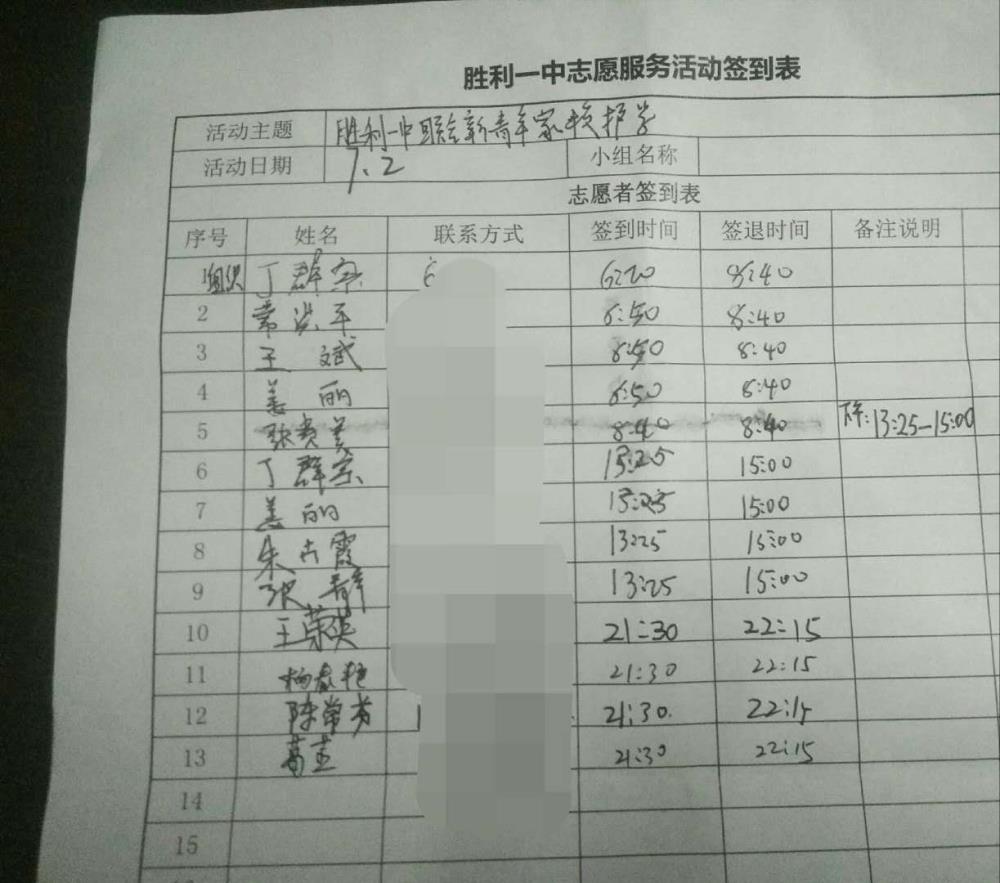 胜利一中志愿服务活动签到表
活动主题 胜利一中联合新青年家校护学
活动日期 7.2 小组名称
志愿者签到表
序号 姓名 联系方式 签到时间 签退时间 备注说明
组织 丁群 6:20 8:40
2 常洪平 6:50 8:40
3 王斌 6:50 8:40
4 姜丽 6:50 8:40
5 张贵美 8:40 8:40 下午:13:25-15:00
6 丁群 13:25 15:00
7 姜丽 13:25 15:00
8 朱霞 13:25 15:00
9 张群 13:25 15:00
10 王荣 21:30 22:15
11 杨春艳 21:30 22:15
12 陈常芳 21:30 22:15
13 葛 21:30 22:15
14
15